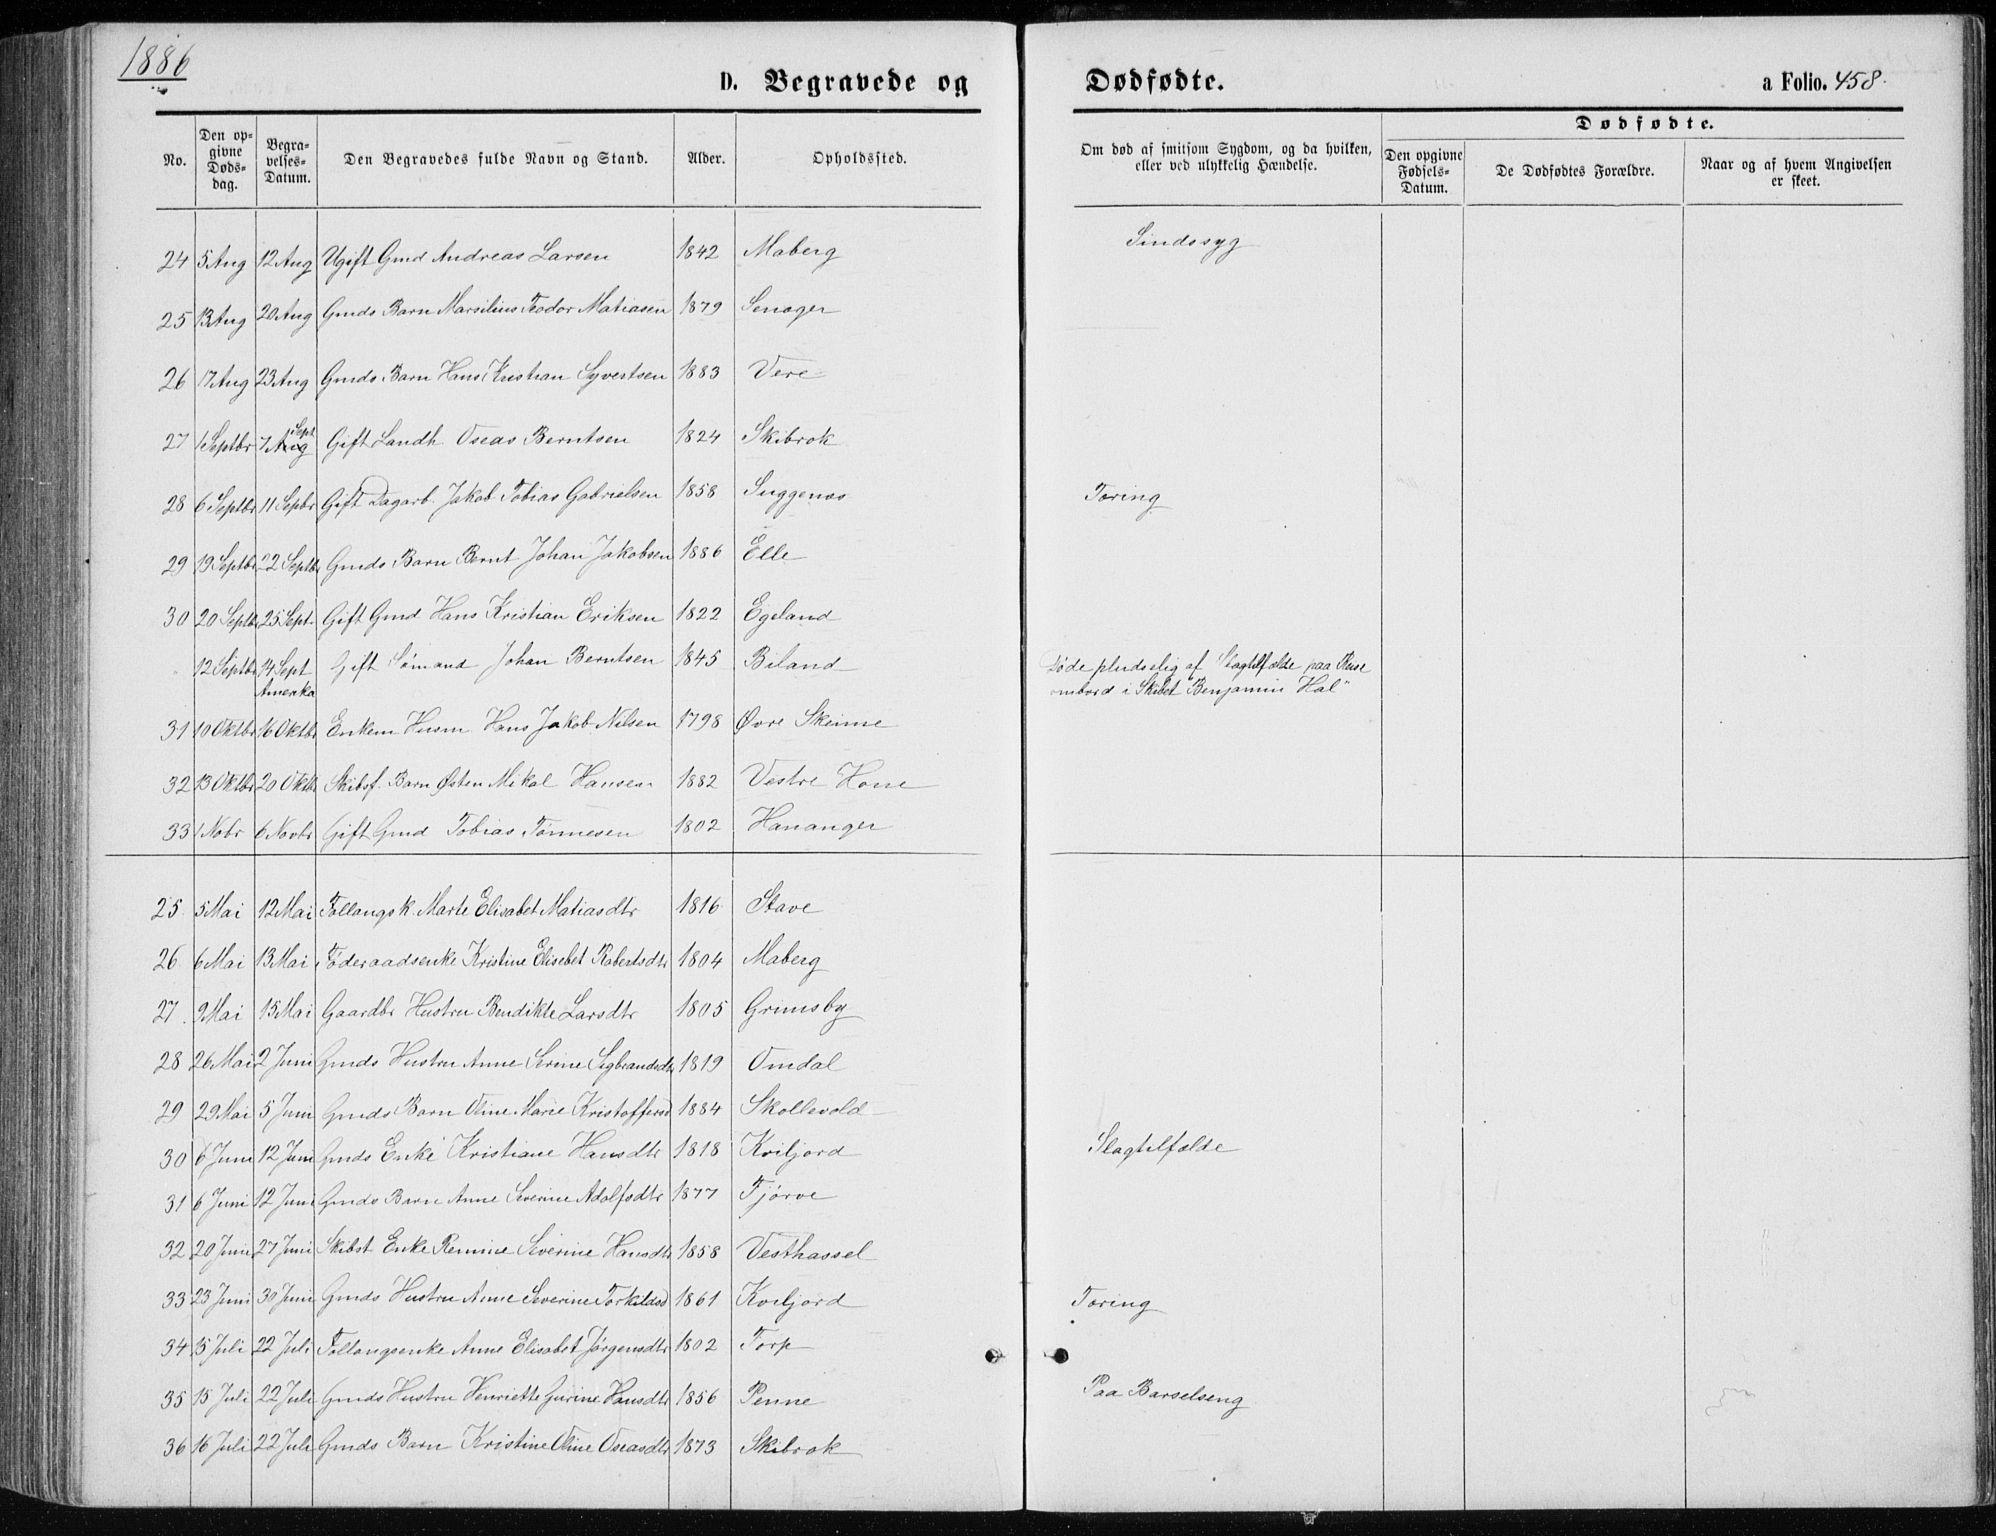 1886
D. Begravede og Dødfødte. a Folio. 458.
No. Den opgivne Døds-dag. Begravelses-Datum. Den Begravedes fulde Navn og Stand. Alder. Opholdssted. Om død af smitsom Sygdom, og da hvilken, eller ved ulykkelig Hændelse. Dødfødte. Den opgivne Fødsels-Datum. De Dødfødtes Forældre. Naar og af hvem Angivelsen er skeet.
24 5 Aug 12 Aug Ugift Gmd Andreas Larsen 1842 Maberg Sindssyg
25 13 Aug 20 Aug Gmds Barn Marsilius Teodor Matiasen 1879
26 17 Aug 23 Aug Gmds Barn Hans Kristian Syvertsen 1883 Vere
27 1 Septbr 7 Aug Sept Gift Landh Oseas Berntsen 1824 Skibrok
28 6 Septbr 11 Sepbr Gift Dagarb. Jakob Tobias Gabrielsen 1858 Snggenes Tæring
29 19 Septbr 22 Septbr Gmds Barn Bernt Johan Jakobsen 1886 Elle
30 20 Septbr 25 Sept Gift Gmd Hans Kristian Eriksen 1822 Egeland
12 Septbr 14 Sept Amerika Gift Sømand Johan Berntsen 1845 Biland Døde pludselig af Slagtilfælde paa Reise
ombord i Skibet "Benjamin Hal"
31 10 Oktbr 16 Oktbr Enkem Husm Hans Jakob Nilsen 1798 Øvre Skeime
32 13 Oktbr 20 Oktb Skibsf. Barn Østen Mikal Hansen 1882 Vestre Hone
33 1 Nobr 6 Novbr Gift Gmd Tobias Tønnesen 1802 Hananger
25 5 Mai 12 Mai Follaugsk. Marte Elisabet Matiasdtr 1816 Stave
26 6 Mai 13 Mai Føderaadsenke Kristine Elisebet Robertsdtr 1804 Maberg
27. 9 Mai 15 Mai Gaardbr Hustru Bendikte Larsdtr 1805 Grimsby
28 26 Mai 2 Juni Gmds Hustru Anne Serine Sigbrandsdtr 1819 Omdal
29 29 Mai 5 Juni Gmds Barn Oline Marie Kristoffersd 1884 Skollevold
30 6 Juni 12 Juni Gmds Enke Kristiane Hansdtr 1818 Kviljord Slagtilfælde
31 6 Juni 12 Juni Gmds Barn Anne Severine Adolfsdtr 1877 Tjørve
32 20 Juni 27 Juni Skibst Enke Remine Severine Hansdtr 1858 Vesthassel
33 23 Juni 30 Juni Gmds Hustru Anne Severine Torkildsd 1861 Kviljord Tæring
34 15 Juli 22 Juli Follaugsenke Anne Elisabet Jørgensdtr 1802 Torp
35 15 Juli 22 Juli Gmds Hustru Henriette Gurine Hansdtr 1856 Penne Paa Barselseng
36 16 Juli 22 Juli Gmds Barn Kristine Oline Oseasdtr 1873 Skibrok